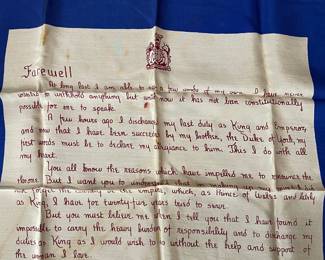 Farewell
At long last I am able to say a few words of my own. I have never
wanted to withhold anything but until now it has not been constitutionally
possible for me to speak.
A few hours ago I discharged my last duty as King and Emperor,
and now that I have been succeeded by my brother, the Duke of York, my
first words must be to declare my allegiance to him. This I do with all
my heart.
You all know the reasons which have impelled me to renounce the
throne. But I want you to understand
not forget the country or the empire, which, as Prince of Wales and lately
as King, I have for twenty-five years tried to serve.
But you must believe me when I tell you that I have found it
impossible to carry the heavy burden of responsibility and to discharge my
duties as King as I would wish to do without the help and support of
the woman I love.